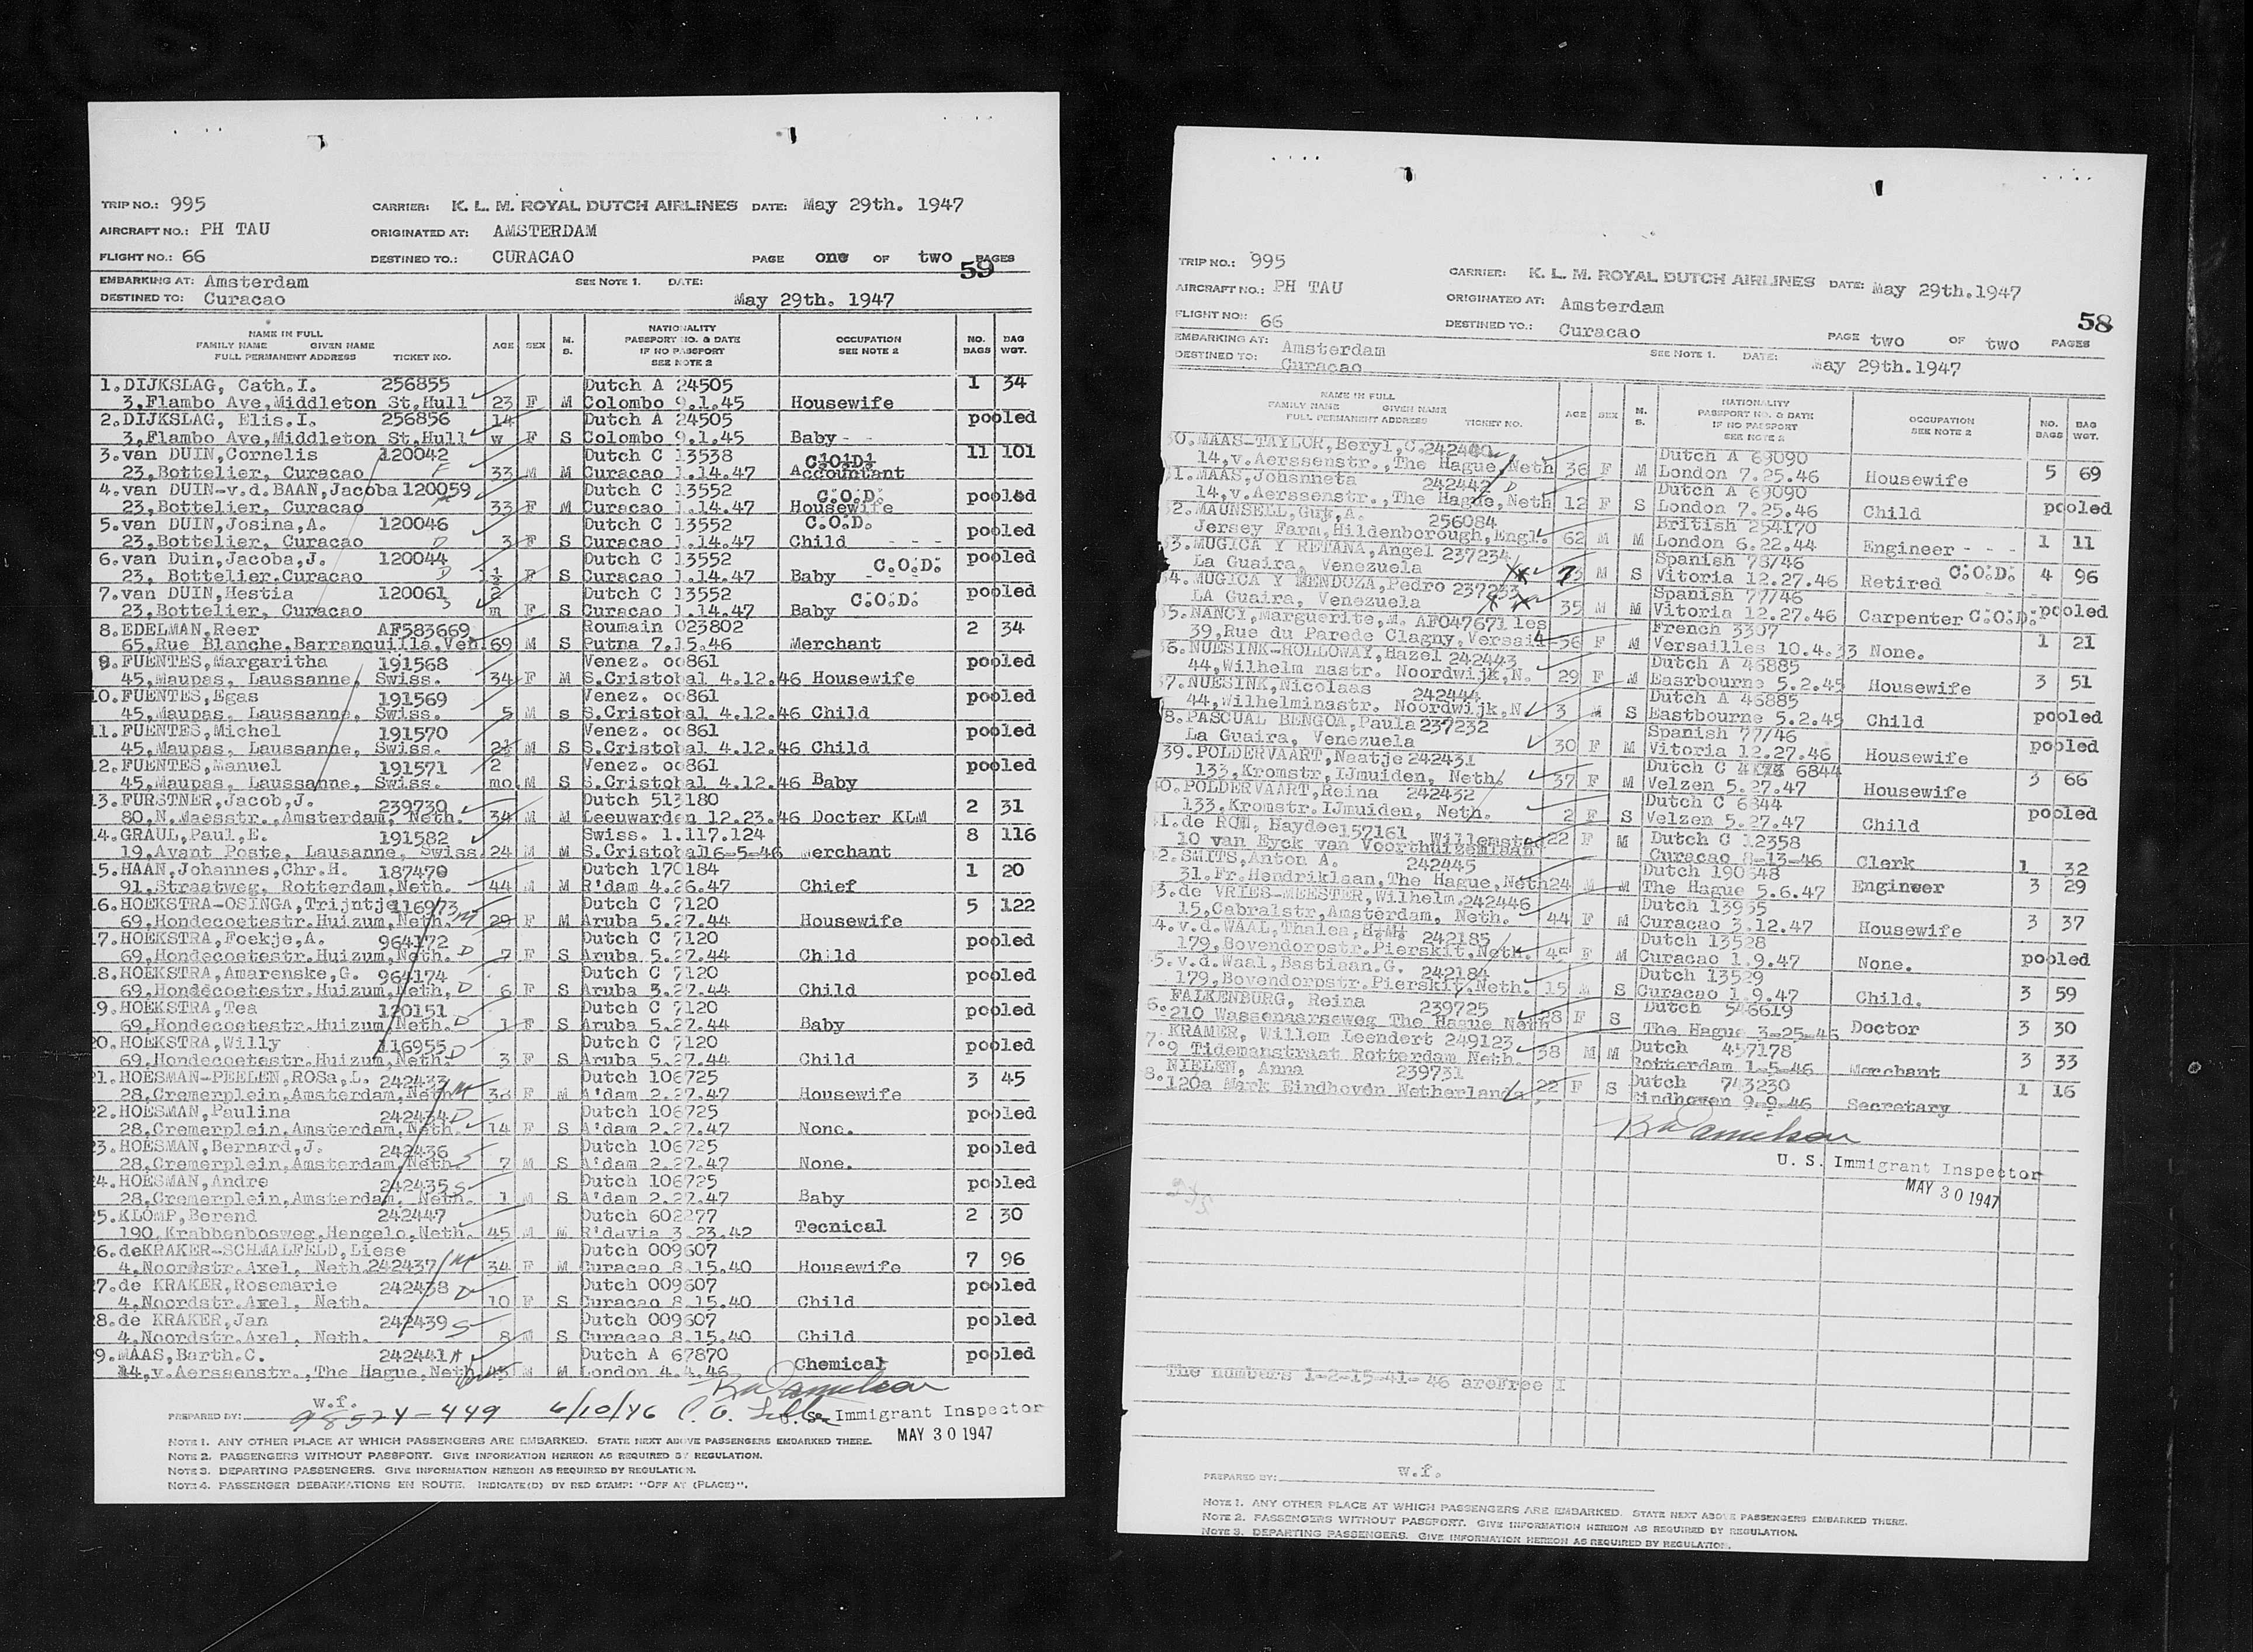 TRIP NO.: 995 CARRIER: K. L. M. ROYAL DUTCH AIRLINES DATE: May 29th. 1947
AIRCRAFT NO.: PH TAU ORIGINATED AT: AMSTERDAM
FLIGHT NO.: 66 DESTINED TO.: CURACAO PAGE one OF two PAGES
59
EMBARKING AT: Amsterdam SEE NOTE 1. DATE:
DESTINED TO: Curacao May 29th. 1947
NAME IN FULL
FAMILY NAME GIVEN NAME
FULL PERMANENT ADDRESS TICKET NO.
AGE SEX M. S.
NATIONALITY
PASSPORT NO. & DATE
IF NO PASSPORT
SEE NOTE 2
OCCUPATION
SEE NOTE 2
NO. BAGS
BAG WGT.
1.DIJKSLAG, Cath.I. 256855 Dutch A 24505 1 34
3,Flambo Ave,Middleton St.Hull 23 F M Colombo 9.1.45 Housewife
2.DIJKSLAG, Elis.I. 256856 14 Dutch A 24505 pooled
3,Flambo Ave,Middleton St.Hull w F S Colombo 9.1.45 Baby - -
3.van DUIN,Cornelis 120042 Dutch C 13538 C.O.D. 11 101
23,Bottelier, Curacao 33 M M Curacao 1.14.47 Accountant
4.van DUIN-v.d.BAAN,Jacoba 120059 Dutch C 13552 C.O.D. pooled
23,Bottelier, Curacao 33 F M Curacao 1.14.47 Housewife
5.van DUIN,Josina,A. 120046 Dutch C 13552 C.O.D. pooled
23,Bottelier, Curacao D 3 F S Curacao 1.14.47 Child - - -
6.van Duin,Jacoba,J. 120044 Dutch C 13552 C.O.D. pooled
23, Bottelier.Curacao D 1½ F S Curacao 1.14.47 Baby - - -
7.van DUIN,Hestia 120061 2 Dutch C 13552 C.O.D. pooled
23,Bottelier, Curacao m F S Curacao 1.14.47 Baby
8.EDELMAN,Reer AF583669 Roumain 023802 2 34
65,Rue Blanche,Barranquilla,Ven. 69 M S Putna 7.15.46 Merchant
9.FUENTES,Margaritha 191568 Venez. oo861 pooled
45,Maupas, Laussanne, Swiss. 34 F M S.Cristobal 4.12.46 Housewife
10.FUENTES,Egas 191569 Venez. oo861 pooled
45,Maupas, Laussanne, Swiss. 5 M s S.Cristobal 4.12.46 Child
11.FUENTES,Michel 191570 Venez. oo861 pooled
45,Maupas, Laussanne, Swiss. 2½ M S S.Cristobal 4.12.46 Child
12.FUENTES,Manuel 191571 2 Venez. oo861 pooled
45,Maupas, Laussanne, Swiss. mo M S S.Cristobal 4.12.46 Baby
13.FURSTNER,Jacob,J. 239730 Dutch 513180 2 31
80,N.Maesstr.,Amsterdam, Neth. 34 M M Leeuwarden 12.23.46 Docter KLM
14.GRAUL,Paul,E. 191582 Swiss. 1.117.124 8 116
19,Avant Poste, Lausanne, Swiss. 24 M M S.Cristobal16-5-46 Merchant
15.HAAN,Johannes,Chr.H. 187470 Dutch 170184 1 20
91,Straatweg, Rotterdam,Neth. 44 M M R'dam 4.26.47 Chief
16.HOEKSTRA-OSINGA,Trijntje 116973 Dutch C 7120 5 122
69,Hondecoetestr.Huizum,Neth. 29 F M Aruba 5.27.44 Housewife
17.HOEKSTRA,Foekje,A. 964172 Dutch C 7120 pooled
69,Hondecoetestr.Huizum,Neth. D 7 F S Aruba 5.27.44 Child
18.HOEKSTRA,Amarenske,G. 964174 Dutch C 7120 pooled
69,Hondecoetestr.Huizum,Neth, D 6 F S Aruba 5.27.44 Child
19.HOEKSTRA,Tea 120151 Dutch C 7120 pooled
69,Hondecoetestr.Huizum,Neth. D 1 F S Aruba 5.27.44 Baby
20.HOEKSTRA,Willy 116955 Dutch C 7120 pooled
69,Hondecoetestr.Huizum,Neth. D 3 F S Aruba 5.27.44 Child
21.HOESMAN-PEELEN,ROSa,L. 242433 Dutch 106725 3 45
28,Cremerplein,Amsterdam,Neth. 38 F M A'dam 2.27.47 Housewife
22.HOESMAN,Paulina 242434 D Dutch 106725 pooled
28,Cremerplein,Amsterdam,Neth. 14 F S A'dam 2.27.47 None.
23.HOESMAN,Bernard,J. 242436 Dutch 106725 pooled
28,Cremerplein,Amsterdam,Neth. 7 M S A'dam 2.27.47 None.
24.HOESMAN,Andre 242435 S Dutch 106725 pooled
28,Cremerplein,Amsterdam, Neth. 1 M S A'dam 2.27.47 Baby
25.KLOMP,Berend 242447 Dutch 602277 2 30
190,Krabbenbosweg,Hengelo,Neth. 45 M M R'davia 3.23.42 Tecnical
26.deKRAKER-SCHMALFELD,Liese Dutch 009607 7 96
4,Noordstr.Axel, Neth.242437 34 F M Curacao 8.15.40 Housewife
27.de KRAKER,Rosemarie 242438 D Dutch 009607 pooled
4,Noordstr.Axel, Neth. 10 F S Curacao 8.15.40 Child
28.de KRAKER,Jan 242439 S Dutch 009607 pooled
4,Noordstr.Axel, Neth. 8 M S Curacao 8.15.40 Child
29.MAAS,Barth.C. 242441 Dutch A 67870 pooled
14,v.Aerssenstr.,The Hague,Neth 45 M M London 4.4.46 Chemical
w.f.
PREPARED BY: 98524-449 6/10/46 U. S. Immigrant Inspector
MAY 30 1947
NOTE 1. ANY OTHER PLACE AT WHICH PASSENGERS ARE EMBARKED. STATE NEXT ABOVE PASSENGERS EMBARKED THERE.
NOTE 2. PASSENGERS WITHOUT PASSPORT. GIVE INFORMATION HEREON AS REQUIRED BY REGULATION.
NOTE 3. DEPARTING PASSENGERS. GIVE INFORMATION HEREON AS REQUIRED BY REGULATION.
NOTE 4. PASSENGER DEBARKATIONS EN ROUTE. INDICATE(D) BY RED STAMP: "OFF AT (PLACE)".
TRIP NO.: 995 CARRIER: K. L. M. ROYAL DUTCH AIRLINES DATE: May 29th.1947
AIRCRAFT NO.: PH TAU ORIGINATED AT: Amsterdam
58
FLIGHT NO.: 66 DESTINED TO.: Curacao PAGE two OF two PAGES
EMBARKING AT: Amsterdam SEE NOTE 1. DATE:
DESTINED TO: Curacao May 29th.1947
NAME IN FULL
FAMILY NAME GIVEN NAME
FULL PERMANENT ADDRESS TICKET NO.
AGE SEX M. S.
NATIONALITY
PASSPORT NO. & DATE
IF NO PASSPORT
SEE NOTE 2
OCCUPATION
SEE NOTE 2
NO. BAGS
BAG WGT.
30.MAAS-TAYLOR,Beryl,C.242440 Dutch A 63090
14,v.Aerssenstr.,The Hague,Neth 36 F M London 7.25.46 Housewife 5 69
31.MAAS,Johsnneta 242442 D Dutch A 69090
14,v.Aerssenstr.,The Hague,Neth 12 F S London 7.25.46 Child pooled
32.MAUNSELL,Guy,A. 256084 British 254170
Jersey Farm,Hildenborough,Engl. 62 M M London 6.22.44 Engineer - - - 1 11
33.MUGICA Y RETANA,Angel 237234 Spanish 78/46
La Guaira, Venezuela 73 M S Vitoria 12.27.46 Retired C.O.D. 4 96
34.MUGICA Y MENDOZA,Pedro 237233 Spanish 77/46
LA Guaira, Venezuela 35 M M Vitoria 12.27.46 Carpenter C.O.D. pooled
35.NANCY,Marguerite,M. AF047671 les French 3307
39,Rue du Parede Clagny,Versail 56 F M Versailles 10.4.33 None. 1 21
36.NUESINK-HOLLOWAY,Hazel 242443 Dutch A 46885
44,Wilhelm nastr. Noordwijk,N. 29 F M Easrbourne 5.2.45 Housewife 3 51
37.NUESINK,Nicolaas 242444 Dutch A 46885
44,Wilhelminastr. Noordwijk,N. 3 M S Eastbourne 5.2.45 Child pooled
38.PASCUAL BENGOA,Paula 237232 Spanish 77/46
La Guaira, Venezuela 30 F M Vitoria 12.27.46 Housewife pooled
39.POLDERVAART,Naatje 242431 Dutch C 6844
133,Kromstr,IJmuiden, Neth. 37 F M Velzen 5.27.47 Housewife 3 66
40.POLDERVAART,Reina 242432 Dutch C 6844
133,Kromstr.IJmuiden, Neth. 2 F S Velzen 5.27.47 Child pooled
41.de ROM, Haydee157161 Willemstad 22 F M Dutch C 12358
10 van Eyck van Voorthuizemlaan Curacao 8-13-46 Clerk 1 32
42.SMITS,Anton A. 242445 Dutch 190648
31,Fr.Hendriklaan,The Hague,Neth 24 M M The Hague 5.6.47 Engineer 3 29
43.de VRIES-MEESTER,Wilhelm.242446 Dutch 13955
15,Cabralstr,Amsterdam, Neth. 44 F M Curacao 3.12.47 Housewife 3 37
44.v.d.WAAL,Thalea,H.M. 242185 Dutch 13528
179,Bovendorpstr.Pierskil,Neth. 45 F M Curacao 1.9.47 None. pooled
45.v.d.Waal,Bastiaan.G. 242184 Dutch 13529
179,Bovendorpstr.Pierskil,Neth. 15 M S Curacao 1.9.47 Child. 3 59
46. FALKENBURG, Reina 239725 Dutch 546619
210 Wassenaarseweg The Hague Neth 28 F S The Hague 3-25-46 Doctor 3 30
47. KRAMER, Willem Leendert 249123 Dutch 457178
9 Tidemanstraat Rotterdam Neth. 38 M M Rotterdam 1-5-46 Merchant 3 33
48. NIELEN, Anna 239731 Dutch 743230
120a Mark Eindhoven Netherland 22 F S Eindhoven 9-9-46 Secretary 1 16
U. S. Immigrant Inspector
MAY 30 1947
The numbers 1-2-15-41- 46 areFree I
w.f.
PREPARED BY:
NOTE 1. ANY OTHER PLACE AT WHICH PASSENGERS ARE EMBARKED. STATE NEXT ABOVE PASSENGERS EMBARKED THERE.
NOTE 2. PASSENGERS WITHOUT PASSPORT. GIVE INFORMATION HEREON AS REQUIRED BY REGULATION.
NOTE 3. DEPARTING PASSENGERS. GIVE INFORMATION HEREON AS REQUIRED BY REGULATION.